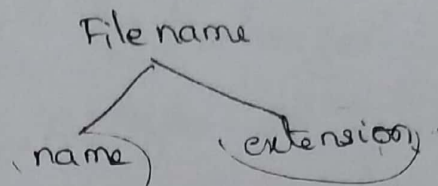 File name
name
extension